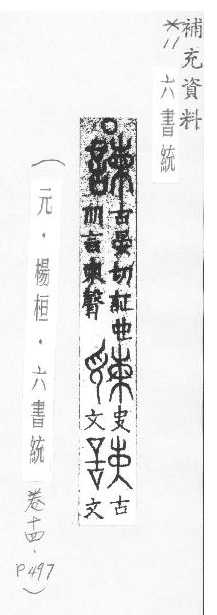 補充資料
*11
六書統
諫
古晏切証也
从言柬聲
史文
古文
(元．楊桓．六書統 卷十四．P497)